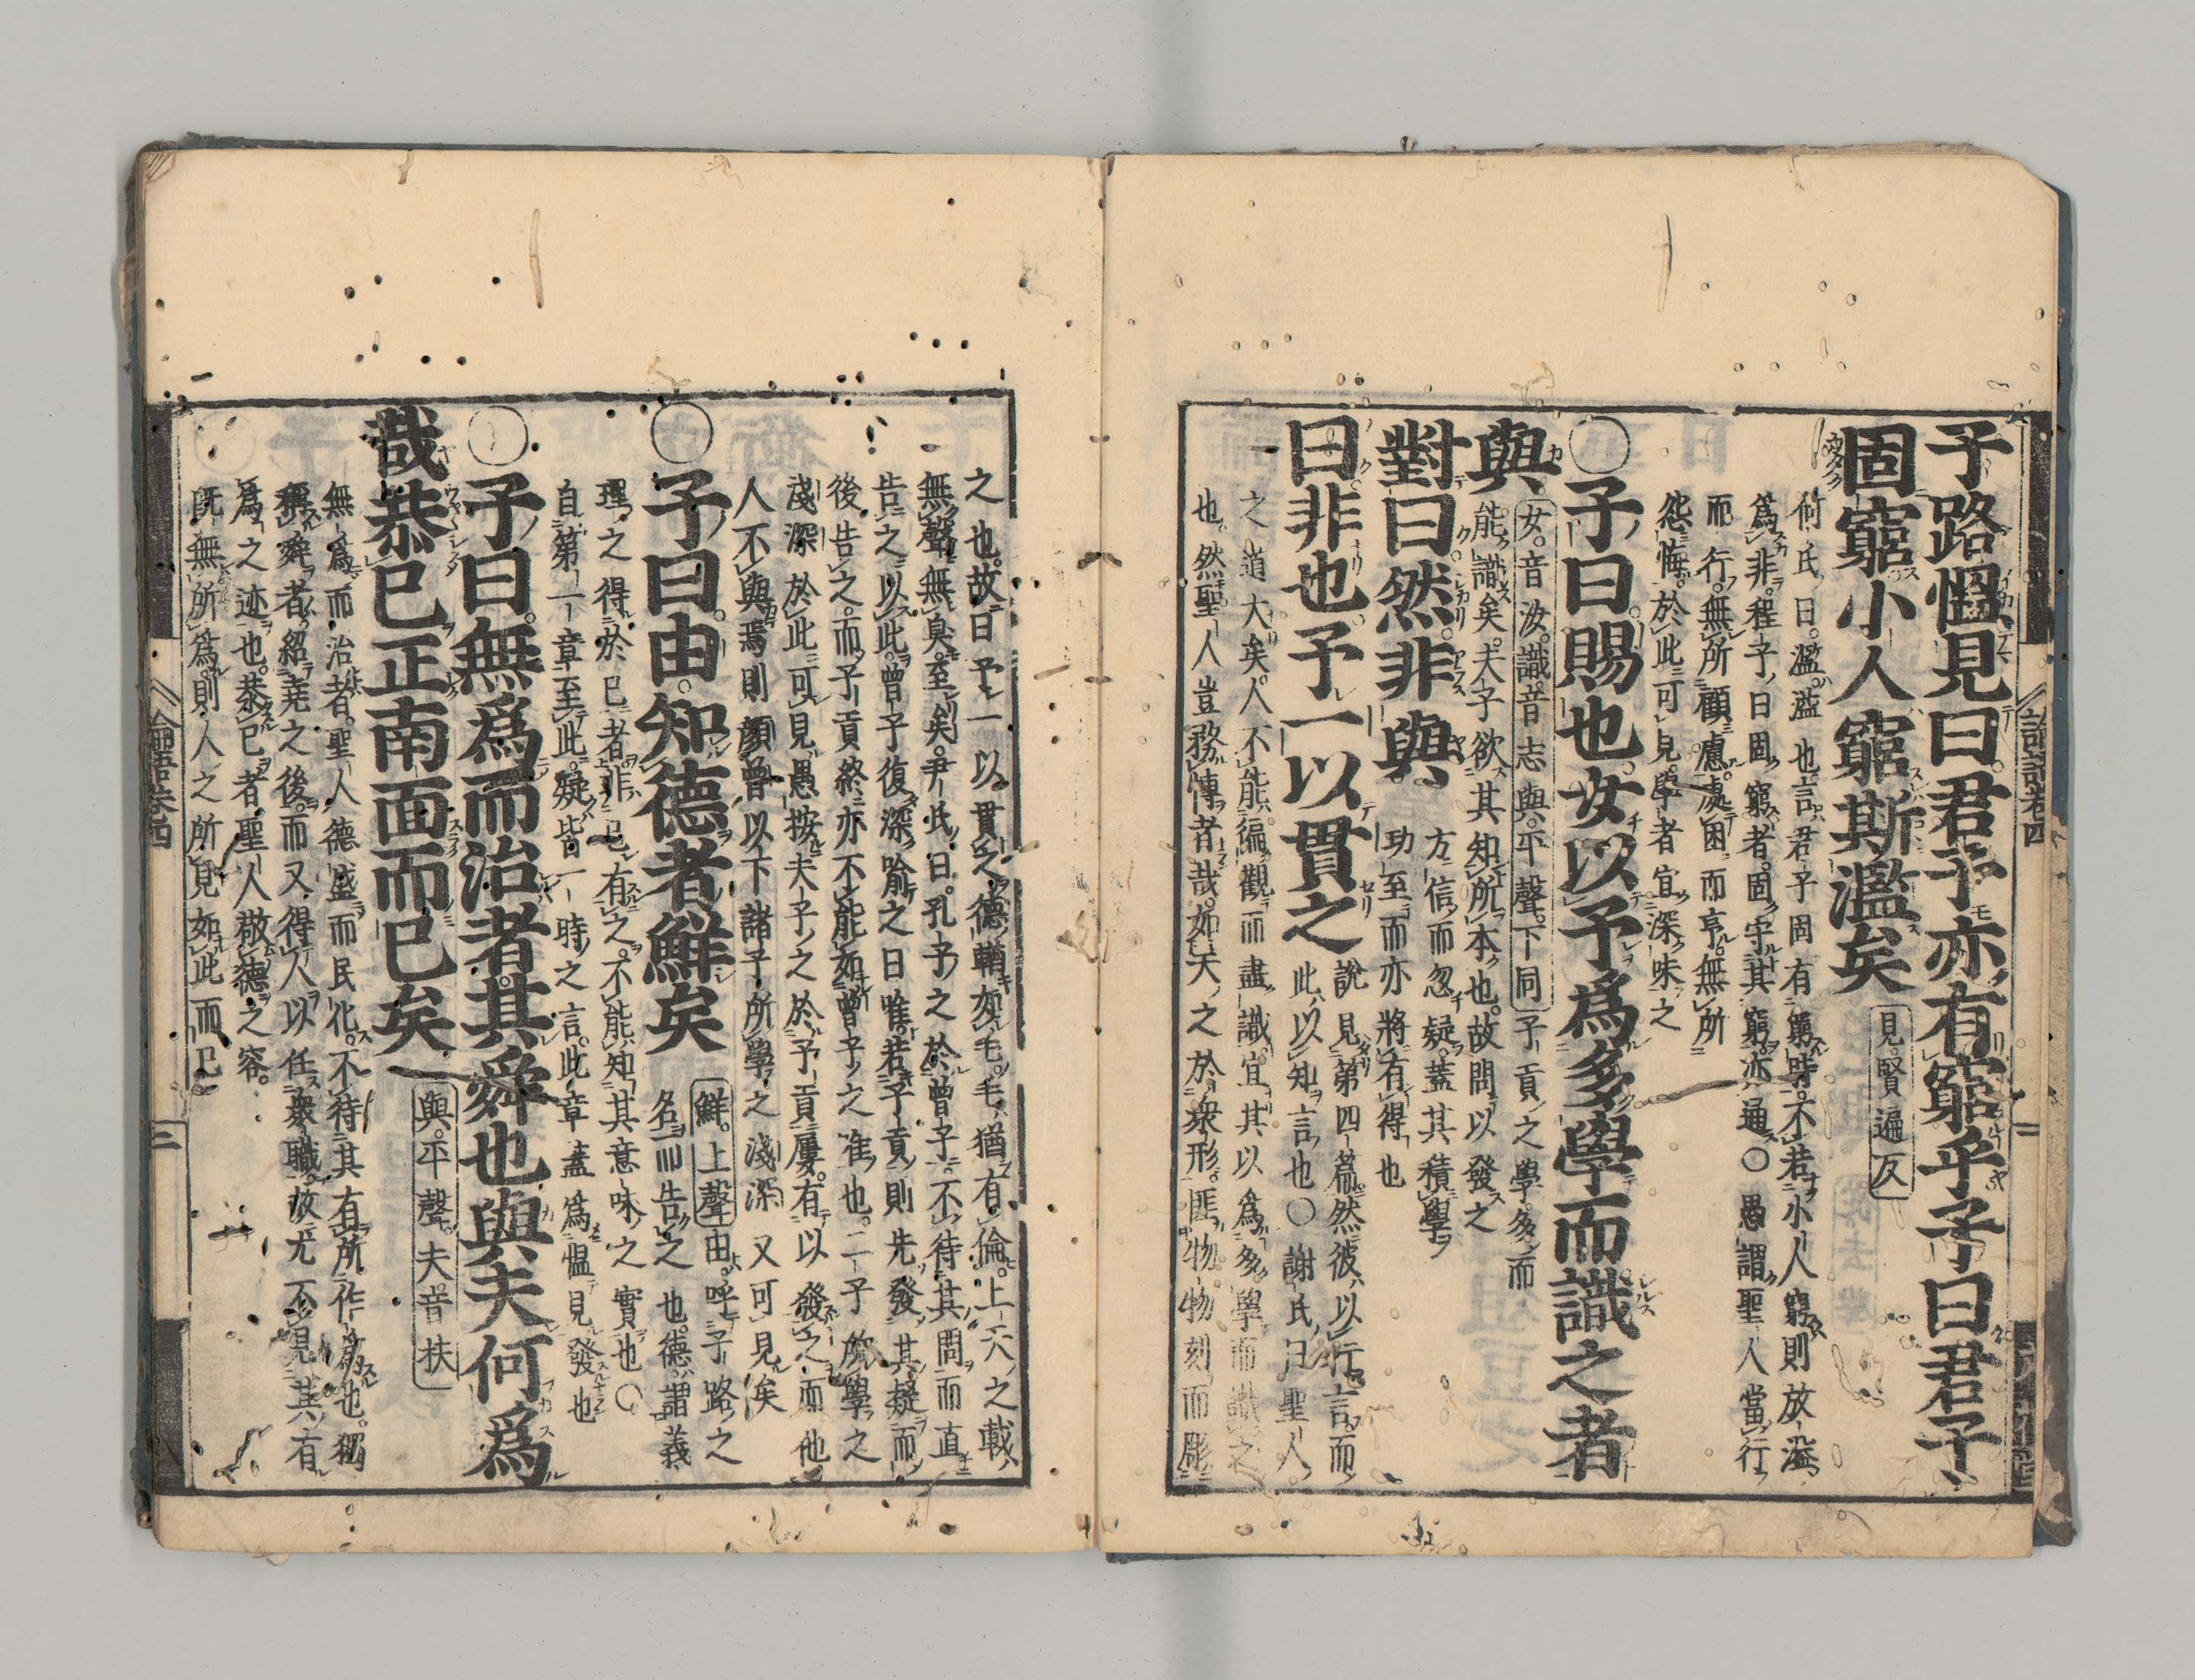 子路慍見曰君子亦有窮乎子曰君子
固窮小人窮斯濫矣 見賢遍反
何氏曰濫溢也言君子固有窮時不若小人窮則放溢
爲非程子曰固窮者固守其窮亦通○愚謂聖人當行
而行無所顧慮處困而亨無所
怨悔於此可見學者宜深味之
○子曰賜也女以予爲多學而識之者
與 女音汝識音志與平聲下同 子貢之學多而
能識矣夫子欲其知所本也故問以發之
對曰然非與 方信而忽疑蓋其積學
功至而亦將有得也
曰非也予一以貫之 說見第四篇然彼以行言而
此以知言也○謝氏曰聖人
之道大矣人不能徧觀而盡識宜其以爲多學而識之
也然聖人豈務博者哉如天之於衆形匪物物刻而彫
論語卷四
二
之也故曰予一以貫之德輶如毛毛猶有倫上天之載
無聲無臭至矣尹氏曰孔子之於曾子不待其問而直
告之以此曾子復深喻之曰唯若子貢則先發其疑而
後告之而子貢終亦不能如曾子之唯也二子所學之
淺深於此可見愚按夫子之於子貢屢有以發之而他
人不與焉則顏曾以下諸子所學之淺深又可見矣
○子曰由知德者鮮矣 鮮上聲 由呼子路之
名而告之也德謂義
理之得於己者非己有之不能知其意味之實也○
自第一章至此疑皆一時之言此章蓋爲慍見發也
○子曰無爲而治者其舜也與夫何爲
哉恭己正南面而已矣 與平聲夫音扶
無爲而治者聖人德盛而民化不待其有所作爲也獨
稱舜者紹堯之後而又得人以任衆職故尤不見其有
爲之迹也恭己者聖人敬德之容
旣無所爲則人之所見如此而已
論語卷四
三